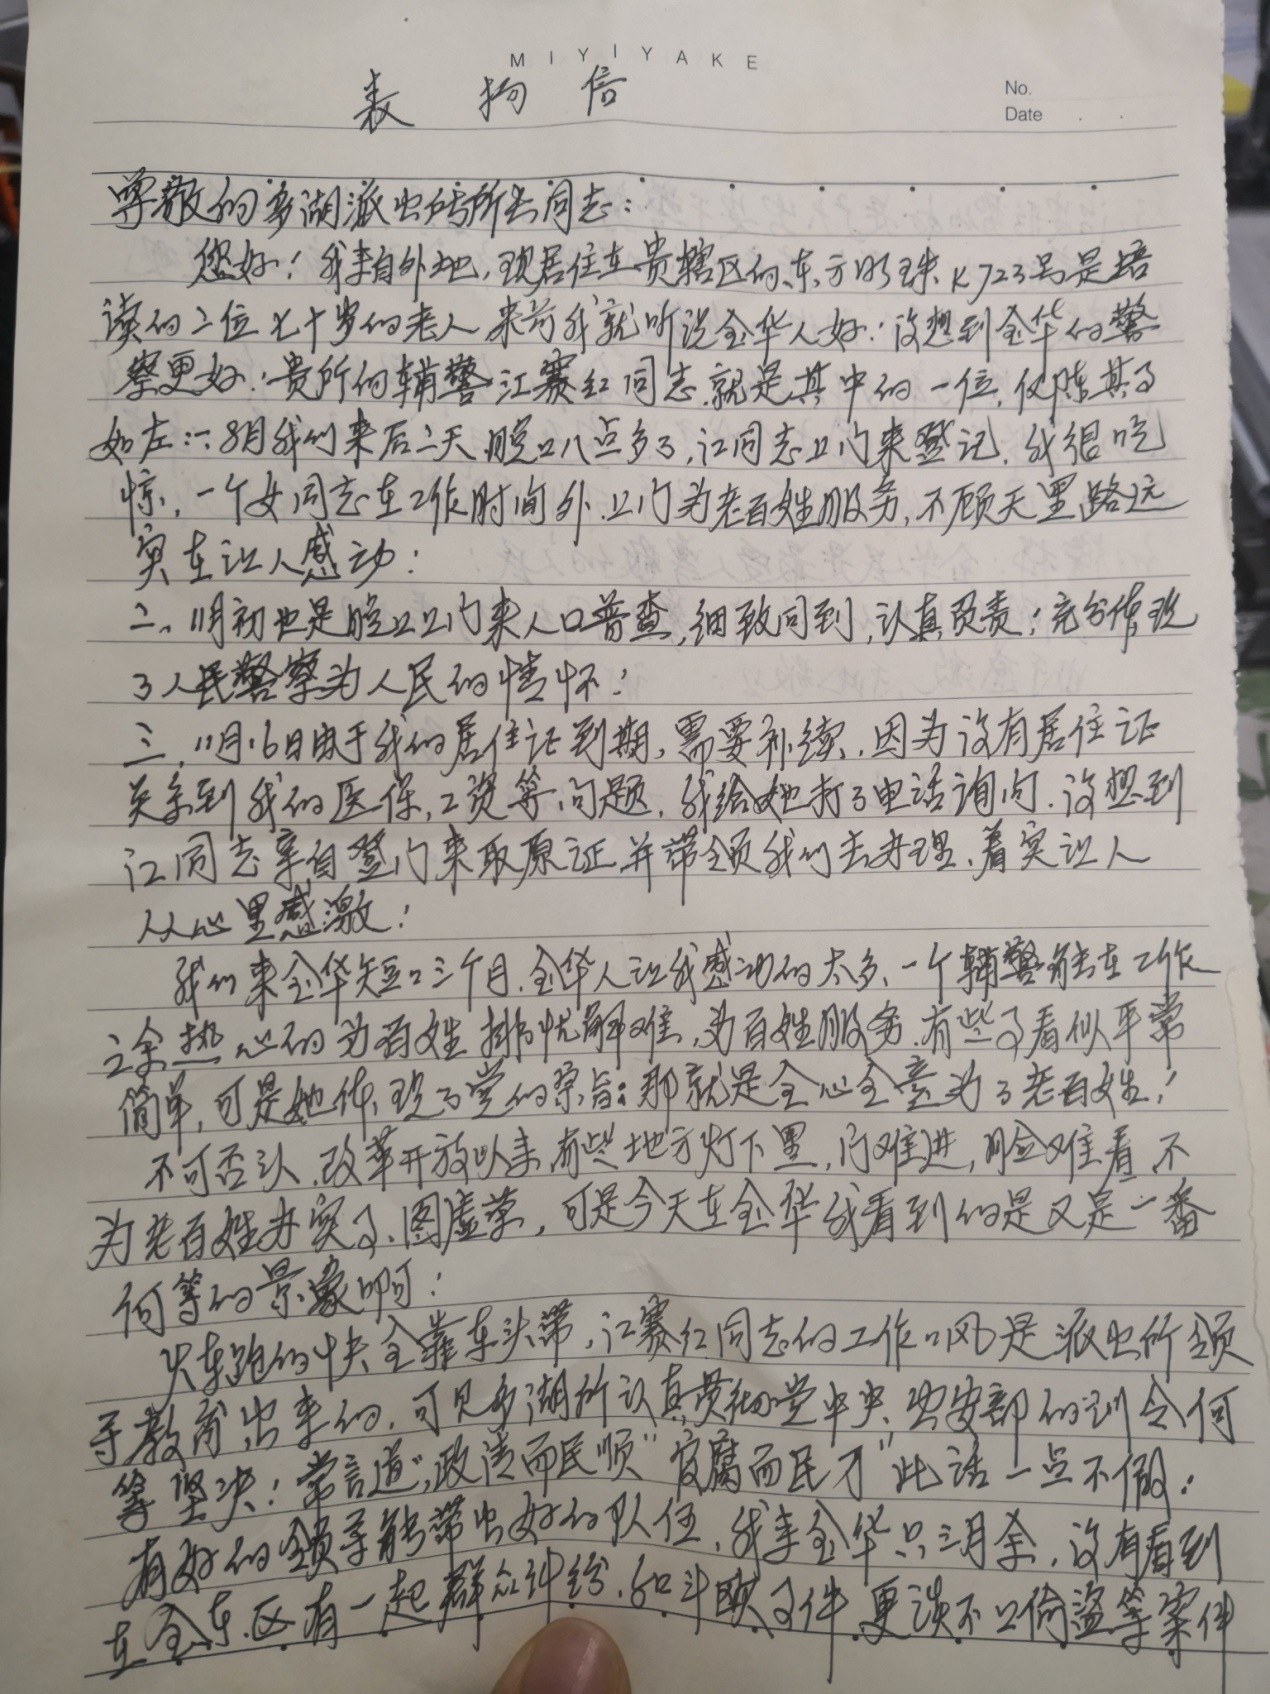 MIYIYAKE
表扬信
No.
Date
尊敬的多湖派出所所长同志:
您好!我来自外地,现居住在贵辖区的东方明珠K723号是培
读的二位七十岁的老人来前我就听说金华人好!没想到金华的警
察更好!贵所的辅警江赛红同志就是其中的一位,仅陈其事
如左:一、8月我们来后二天,晚上八点多了,江同志上门来登记,我很吃
惊,一个女同志在工作时间外,上门为老百姓服务,不顾天黑路远
实在让人感动!
二、11月初也是晚上上门来人口普查,细致问到,认真负责!充分体现
了人民警察为人民的情怀!
三、11月16日由于我的居住证到期,需要补续,因为没有居住证
关系到我的医保,工资等问题,我给她打了电话询问,没想到
江同志亲自登门来取原证并带领我们去办理,着实让人
从心里感激!
我们来金华短短三个月,金华人让我感动的太多,一个辅警能在工作
之余热心的为百姓排忧解难,为百姓服务,有些事看似平常
简单,可是她体现了党的宗旨:那就是全心全意为了老百姓!
不可否认,改革开放以来,有些地方灯下黑,门难进,脸难看,不
为老百姓办实事,图虚荣,可是今天在金华我看到的是又是一番
何等的景象啊!
火车跑的快全靠车头带,江赛红同志的工作作风是派出所领
导教育出来的,可见多湖所认真贯彻党中央,公安部的训令何
等坚决!常言道:"政清而民顺""官腐而民刁"此话一点不假!
有好的领导能带出好的队伍,我来金华只三月余,没有看到
在金东区有一起群众纠纷,和斗殴事件,更谈不上偷盗等案件